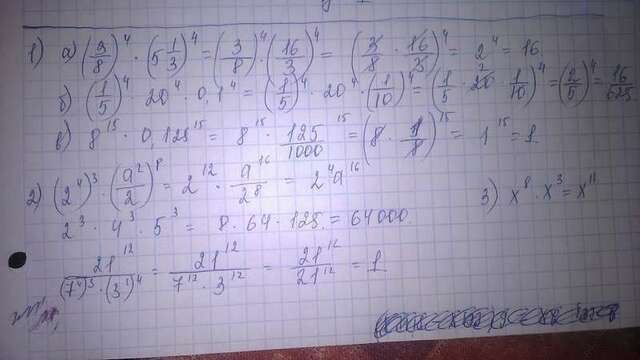 1) а) (3/8)⁴ · (5 1/3)⁴ = (3/8)⁴ · (16/3)⁴ = (3/8 · 16/3)⁴ = 2⁴ = 16
б) (1/5)⁴ · 20⁴ · 0,1⁴ = (1/5)⁴ · 20⁴ · (1/10)⁴ = (1/5 · 20 · 1/10)⁴ = (2/5)⁴ = 16/625
в) 8¹⁵ · 0,125¹⁵ = 8¹⁵ · 125/1000¹⁵ = (8 · 1/8)¹⁵ = 1¹⁵ = 1
2) (2⁴)³ · (a²/2)⁸ = 2¹² · a¹⁶/2⁸ = 2⁴a¹⁶
3) x⁸ · x³ = x¹¹
2³ · 4³ · 5³ = 8 · 64 · 125 = 64000
21¹²/(7⁴)³ · (3¹)⁴ = 21¹²/7¹² · 3¹² = 21¹²/21¹² = 1